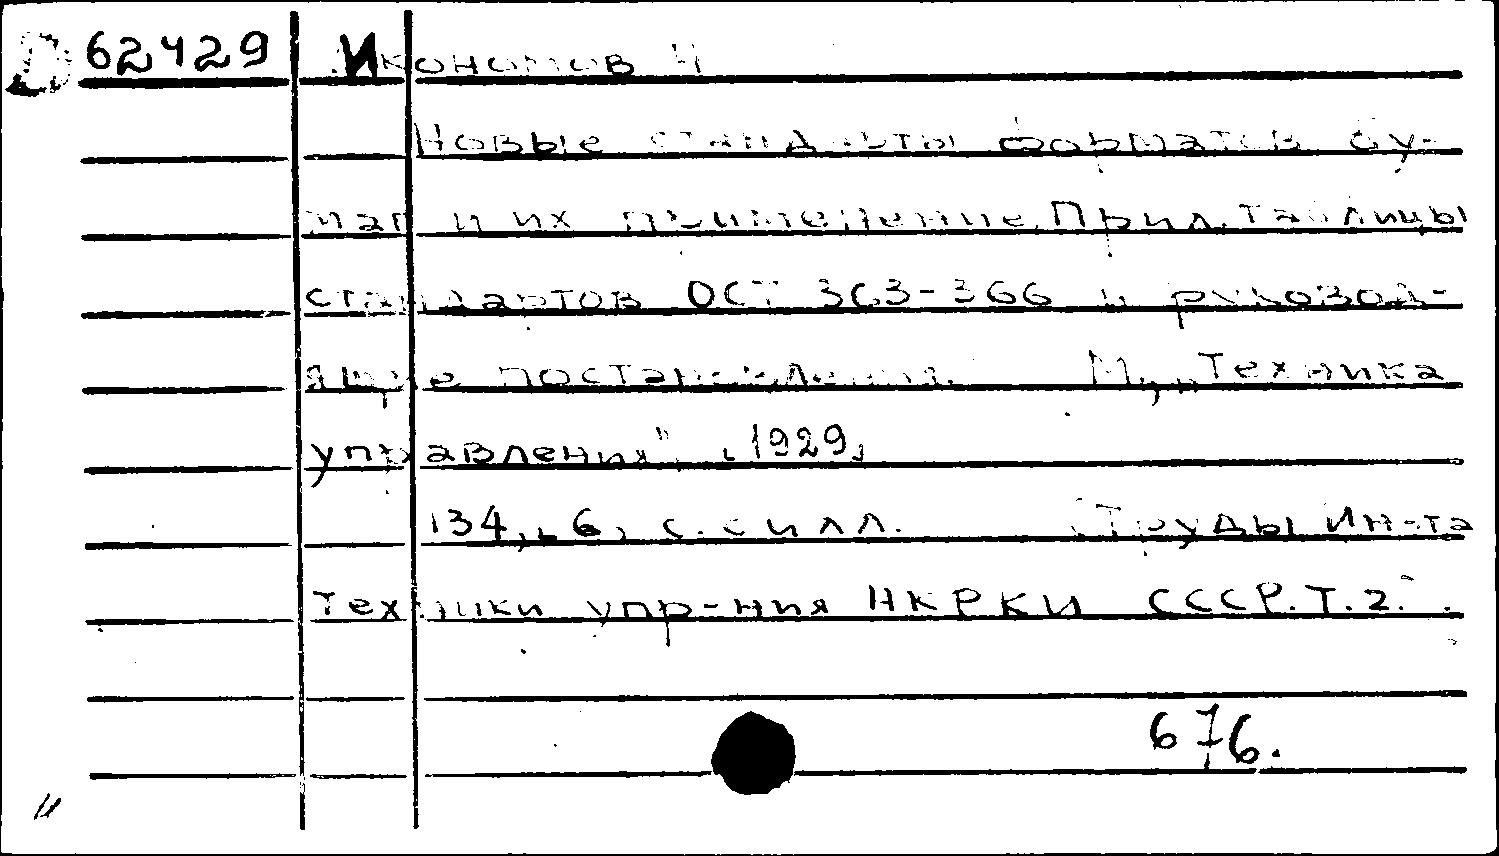 62429 Икономов Н
Новые стандарты форматов бу-
маг и их применение. Прил. таблицы
стандартов ОСТ 363-366 и руковод-
ящие постановления. М., „Техника
управления", [1929]
134, [6] с. с илл. (Труды Ин-та
техники упр-ния НКРКИ СССР. Т. 2.)
676.